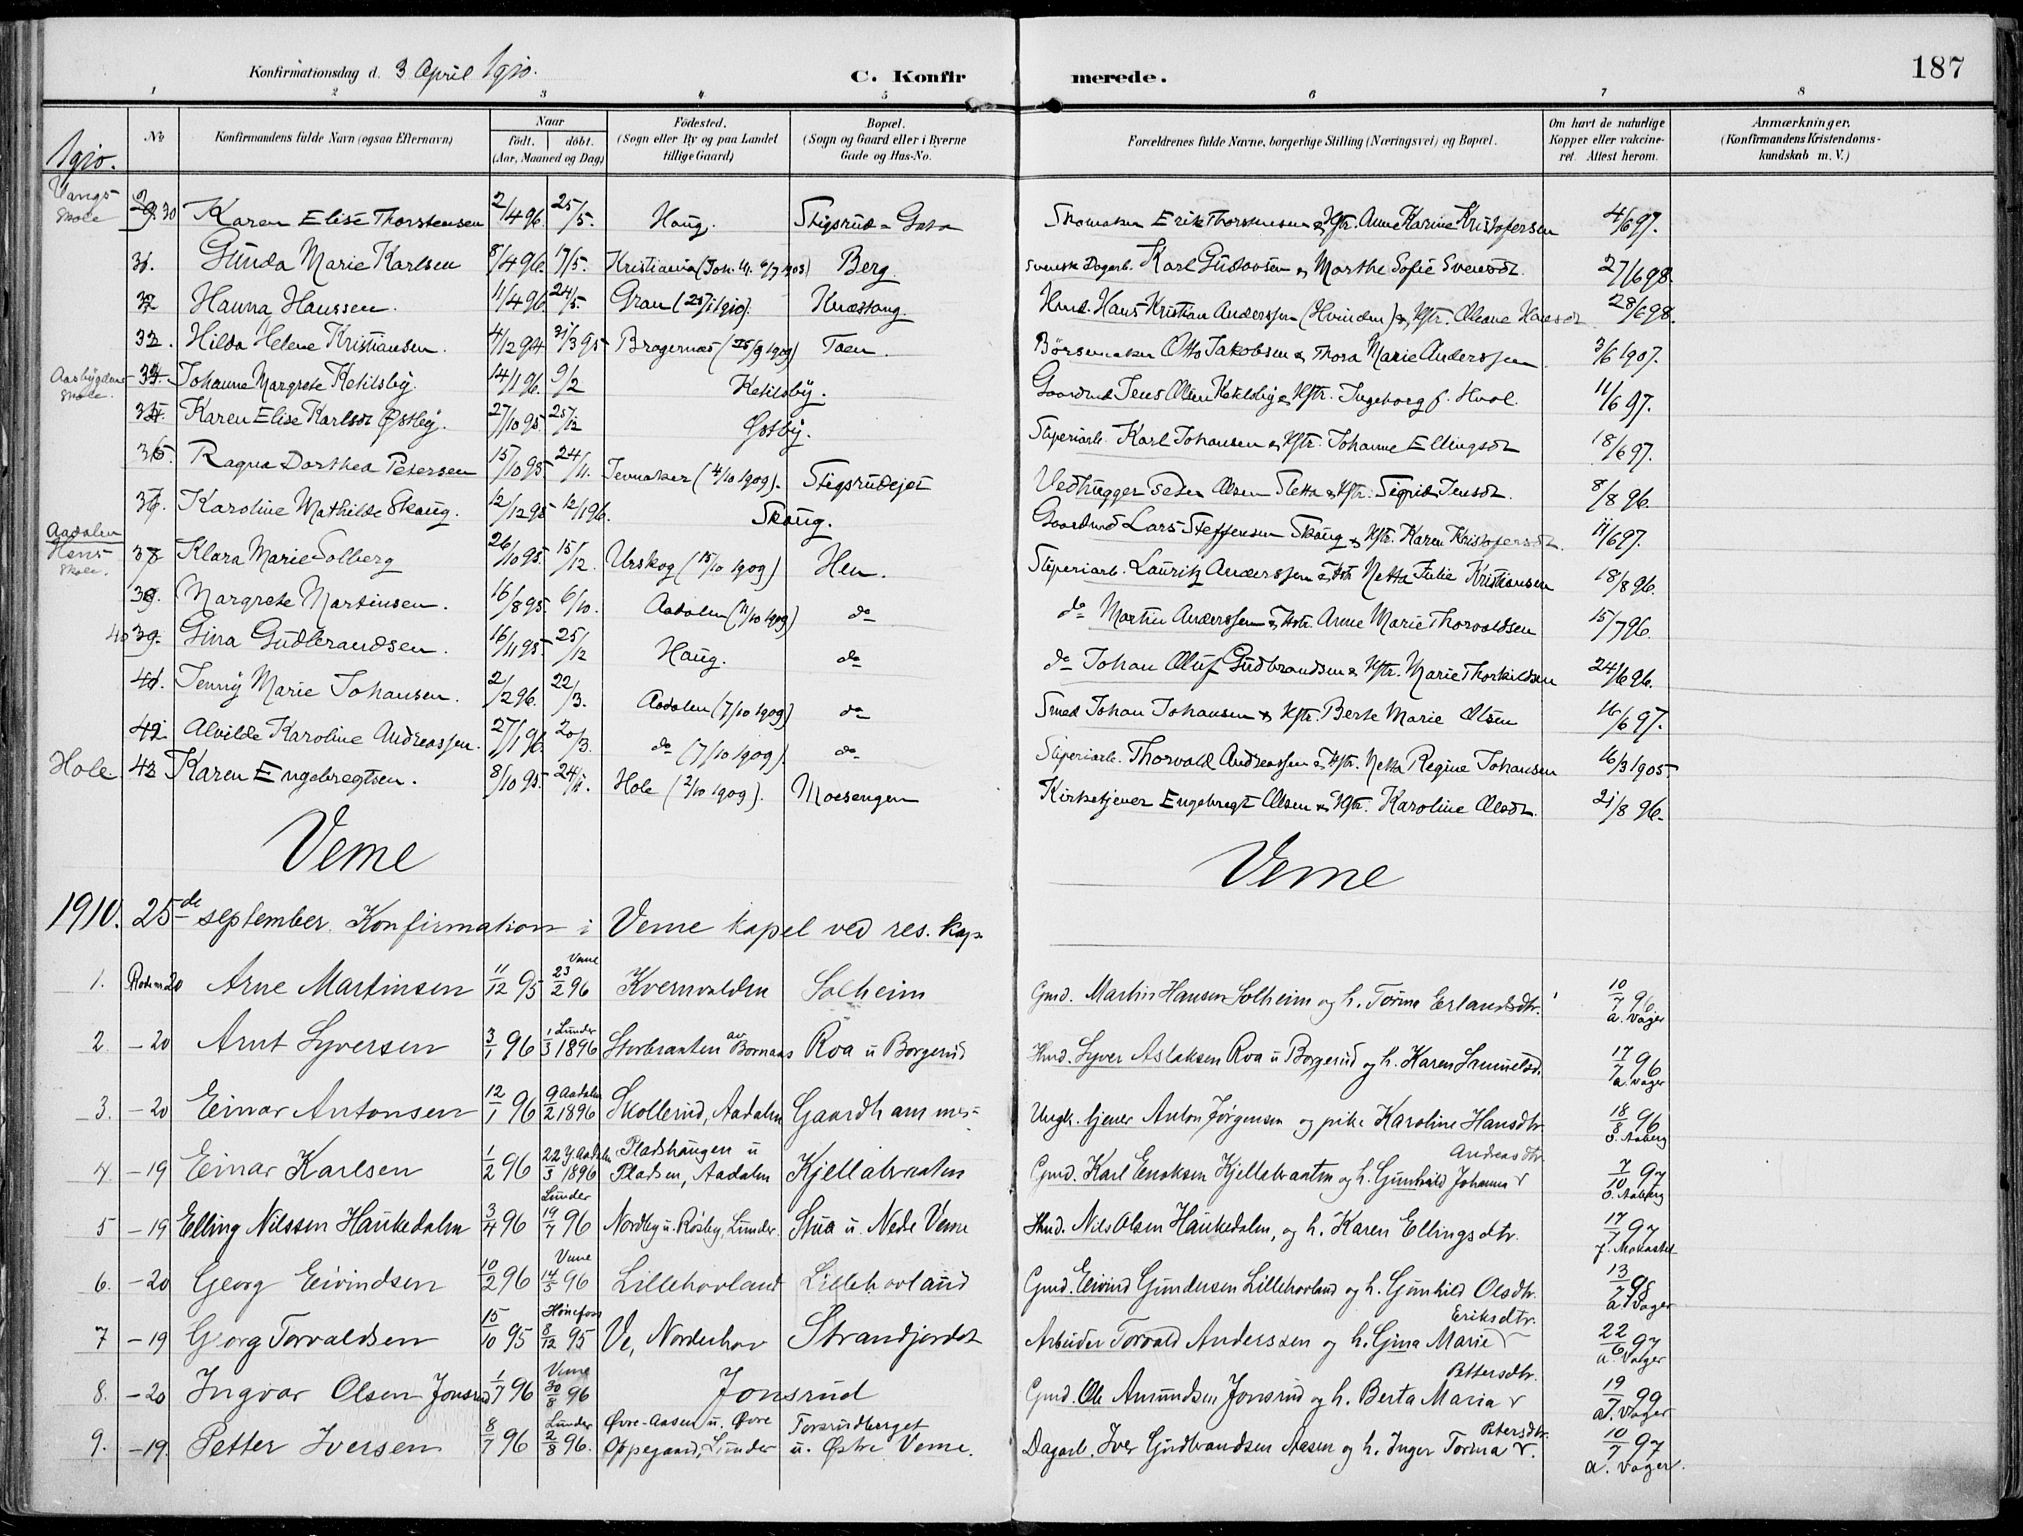 Konfirmationsdag d. 3 April 1910.
C. Konfirmerede.
187
1 2 3 4 5 6 7 8
No
Konfirmandens fulde Navn (ogsaa Efternavn)
Naar
født. døbt.
(Aar, Maaned og Dag)
Fødested.
(Sogn eller By og paa Landet tillige Gaard)
Bopæl.
(Sogn og Gaard eller i Byerne Gade og Hus-No.
Forældrenes fulde Navne, borgerlige Stilling (Næringsvei) og Bopæl.
Om havt de naturlige Kopper eller vakcineret. Attest herom.
Anmærkninger.
(Konfirmandens Kristendomskundskab m. V.)
1910.
Vangs Skole 30 Karen Elise Thorstensen 2/4 96. 25/5. Haug. Stigsrud Skomaker Erik Thorstensen & Hstr. Anne Karine Kristofersen 4/6 97.
31. Gunda Marie Karlsen 8/4 96. 17/5. Kristiania Berg. Svensk Dagarb. Karl Gustavsen & Marthe Sofie Svensdt. 27/6 98.
32 Hanna Hanssen. 11/4 96. 24/5. Gran (25/1 1910). Knestang. Hmd. Hans Kristian Anderssen (Hvinden) & Hstr. Oleane Hansdt. 28/6 98.
Hilda Helene Kristiansen. 4/12 94 31/3 95 Bragernæs Taen. Børsemaker Otto Jakobsen & Thora Marie Anderssen 3/6 1907.
Aasbygdens Skole. Johanne Margrete Ketilsby. 14/1 96. 9/2 Ketilsby. Gaardmd. Jens Olsen Ketilsby & Hstr. Ingeborg f. Hval. 11/6 97.
Karen Elise Karlsdt Østby. 27/10 95. 25/12 Østby. Sliperiarb. Karl Johansen & Hstr. Johanne Ellingsdt 18/6 97.
Ragna Dorthea Petersen 15/10 95 24/11. Jevnaker (4/10 1909). Stigsrudejet Vedhugger Peder Olsen Sletta & Hstr. Sigrid Jensdt. 8/8 96.
Karoline Mathilde Skaug. 12/12 95 12/1 96. Skaug. Gaardmd Lars Steffensen Skaug & Hstr. Karen Kristofersdt. 11/6 97.
Aadalen
Hens Skole. Klara Marie Solberg 26/10 95. 15/12 Urskog (15/10 1909) Hen. Sliperiarb. Lauritz Anderssen & Hstr Netta Julie Kristiansen 18/8 96.
Margrete Martinsen. 16/8 95. 6/10. Aadalen (11/10 1909) do Martin Anderssen & Hstr. Anne Marie Thorvaldsen 15/7 96.
40 39. Gina Gudbrandsen. 16/11 95. 25/12 Haug. do do Johan Oluf Gudbrandsen & Hstr. Marie Thorkildsen 24/6 96.
41. Jenny Marie Johansen. 2/2 96. 22/3. Aadalen (7/10 1909) do Smed Johan Johansen & Hstr. Berte Marie Olsen 16/6 97.
42 Alvilde Karoline Andreassen. 27/1 96. 20/3. do (7/10 1909) do Sliperiarb. Thorvald Andreassen & Hstr. Netta Regine Johansen 16/3 1905.
Hole. 43 Karen Engebregtsen. 8/10 95. 24/11. Hole (2/10 1909). Moesengen Kirketjener Engebregt Olsen & Hstr. Karoline Olsdt. 21/8 96.
Veme Veme
1910. 25de september. Konfirmation i Veme kapel ved res. kap.
1. Rode no 20 Arne Martinsen 11/12 95 Veme 23/2 96 Kvernvolden Solheim Gmd. Martin Hansen Solheim og h. Torine Erlandsdtr. 10/7 96. a. Vager
2. - 20 Arnt Syversen 3/1 96 Lunder 1/3 1896 Storbraaten av Bornaas Roa u Borgerud Hmd. Syver Aslaksen Roa u Borgerud og h. Karen Samuelsd. 17/7 96 a. Vager
3. - 20 Einar Antonsen 12/1 96 Aadalen 9/2 1896 Skollerud, Aadalen Gaardhammer Ungk. tjener Anton Jørgensen og pike Karoline Hansdtr. 18/8 96 O. Aaberg
4. - 19 Einar Karlsen 1/2 96 22/3 1896 Y. Aadalen Pladshaugen u Pladsen, Aadalen Kjellabraaten Gmd. Karl Eriksen Kjellabraaten og h. Gunhild Johanne Andreasdtr 7/10 97 O. Aaberg
5 - 19 Elling Nilssen Haukedalen 3/4 96 Lunder 19/7 96 Nordby u. Røsby, Lunder. Stua u. Nedre Veme Hmd. Nils Olsen Haukedalen, og h. Karen Ellingsdtr. 17/7 97
6. - 20 Georg Eivindsen 10/2 96 Veme 14/5 96 Lillehovland Lillehovland Gmd. Eivind Gundersen Lillehovland og h. Gunhild Olsdtr. 13/7 98 a. Vager
7 - 19 Georg Torvaldsen 15/10 95 Hønefoss 8/12 95 Ve, Norderhov Strandjordet Arbeider Torvald Anderssen og h. Gina Marie Eriksdtr. 22/6 97 a. Vager
8. - 20 Ingvar Olsen Jonsrud 1/7 96 Veme 30/8 96 Jonsrud Gmd. Ole Amundsen Jonsrud og h. Berta Maria Pettersdtr. 19/7 99 a. Vager
9. - 19. Petter Iversen 8/7 96 Lunder 2/8 96. Øvre-Aasen u. Øvre Oppegaard, Lunder Torsrudberget u. Østre Veme. Dagarb. Iver Gudbrandsen Aasen og h. Inger Torina Petersdtr. 10/7 97 a. Vager.